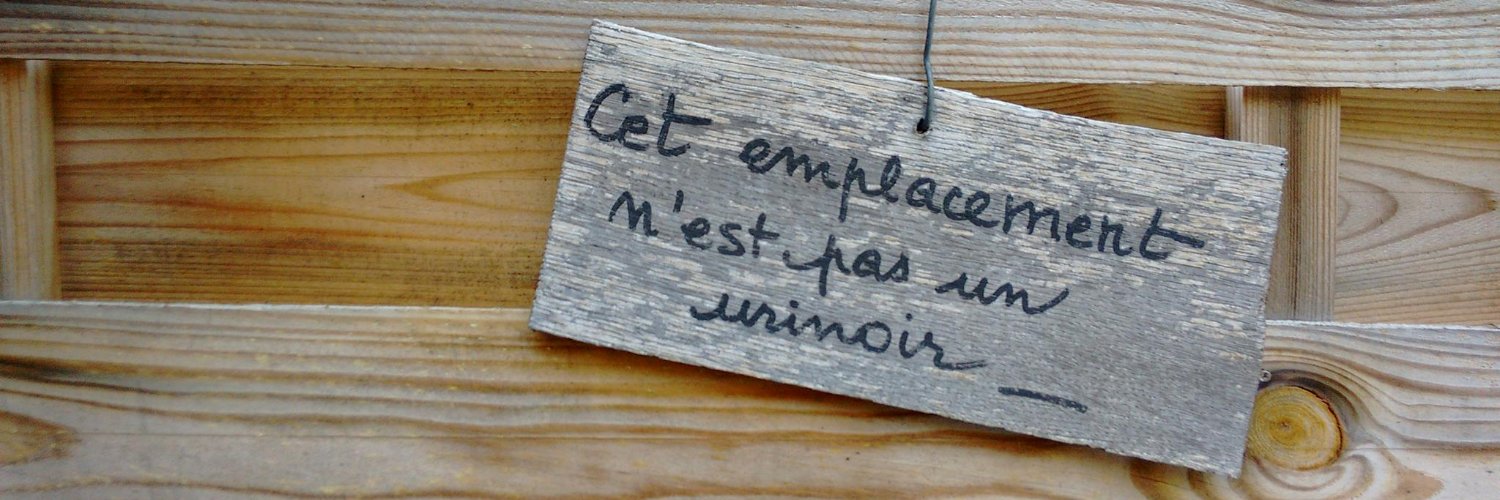 Cet emplacement
n'est pas un
urinoir_